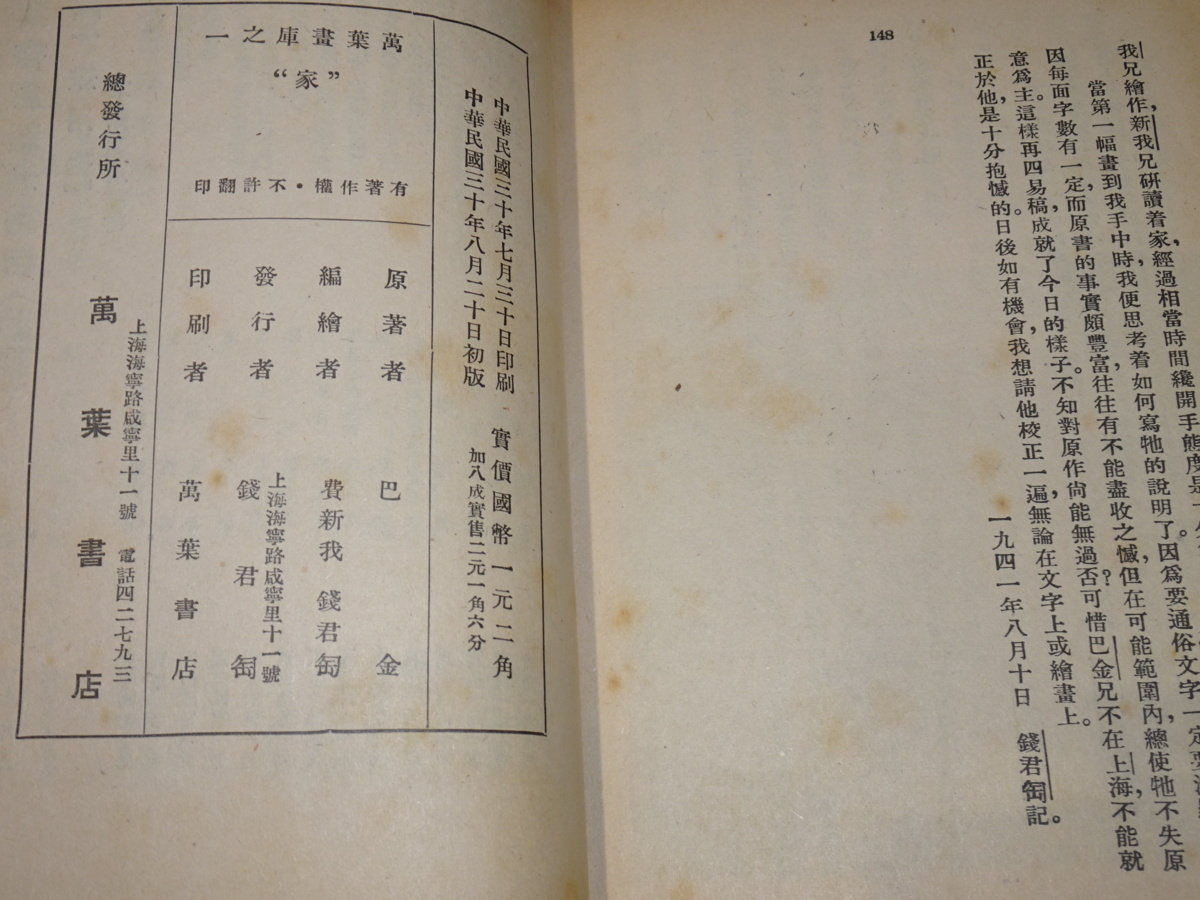 148
我兄繪作，新我兄研讀着家，經過相當時間纔開手態度是
當第一幅畫到我手中時，我便思考着如何寫牠的說明了。因爲要通俗文字一定要
因每面字數有一定，而原書的事實頗豐富，往往有不能盡收之憾，但在可能範圍內，總使牠不失原
意爲主。這樣再四易稿，成就了今日的樣子。不知對原作尙能無過否？可惜巴金兄不在上海，不能就
正於他，是十分抱憾的。日後如有機會我想請他校正一遍，無論在文字上或繪畫上。
一九四一年八月十日 錢君匋記。
中華民國三十年七月三十日印刷
中華民國三十年八月二十日初版
實價國幣一元二角
加八成實售二元一角六分
萬葉畫庫之一
“家”
有著作權・不許翻印
原著者 巴金
編繪者 費新我 錢君匋
發行者 錢君匋
上海海寧路咸寧里十一號
印刷者 萬葉書店
總發行所 萬葉書店
上海海寧路咸寧里十一號 電話四二七九三